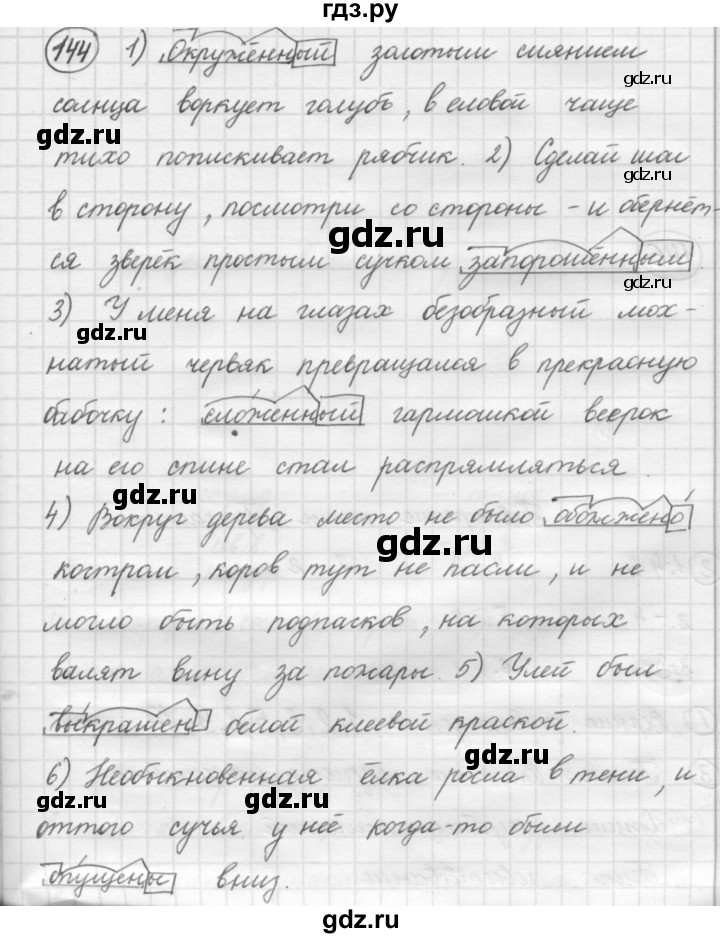 гдз.ру
144 1) Окружённый золотым сиянием
gdz.ru
солнца воркует голубь, в еловой чаще
gdz.ru gdz.ru
тихо попискивает рябчик. 2) Сделай шаг
gdz.ru
в сторону, посмотри со стороны - и обернёт-
gdz.ru
ся зверёк простым сучком запорошённым.
gdz.ru
3) У меня на глазах безобразный мох-
gdz.ru
натый червяк превращался в прекрасную
бабочку: сложенный гармошкой веерок
на его спине стал распрямляться.
gdz.ru
4) Вокруг дерева место не было обожжено
gdz.ru
костром, коров тут не пасли, и не
могло быть подпасков, на которых
валят вину за пожары. 5) Улей был
gdz.ru
выкрашен белой клеевой краской.
gdz.ru
6) Необыкновенная ёлка росла в тени, и
gdz.ru gdz.ru
оттого сучья у неё когда-то были
gdz.ru
опущены вниз.
gdz.ru
гдз.ру